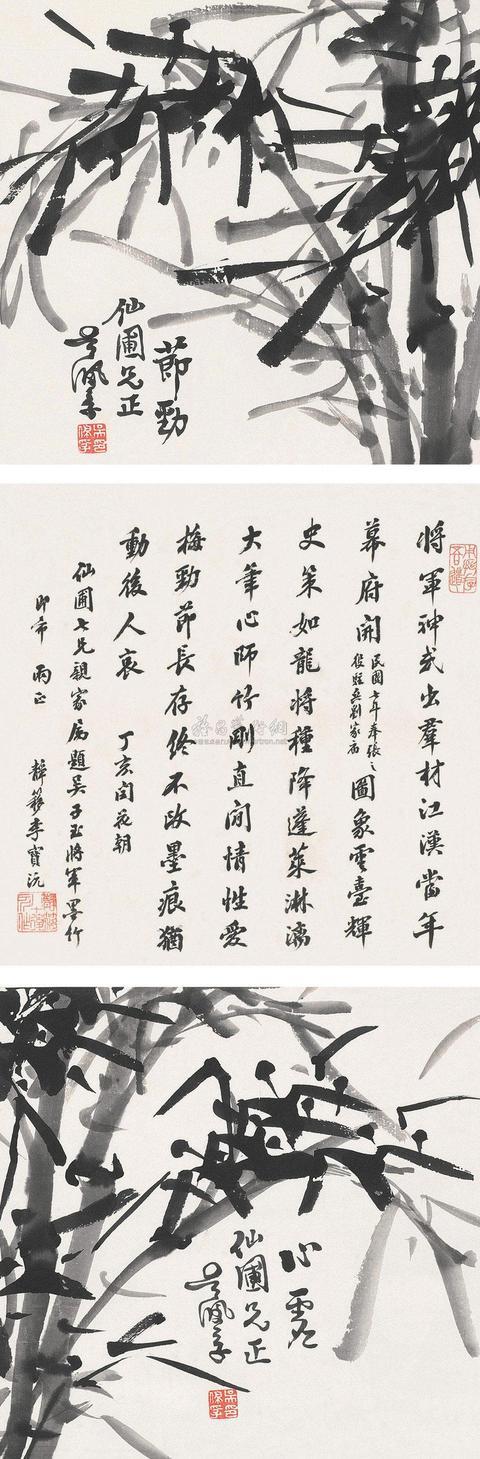 節勁
仙圃兄正
吳佩孚
將軍神武出羣材江漢當年
幕府開
民國七年奉張之
圖象雲臺輝
史策如龍將種降蓬萊淋漓
大筆心師竹剛直閒情性愛
梅勁節長存終不改墨痕猶
動後人哀 丁亥閏花朝
仙圃七兄親家屬題吳子玉將軍墨竹
即希 兩正 李寶沅
心虛
仙圃兄正
吳佩孚